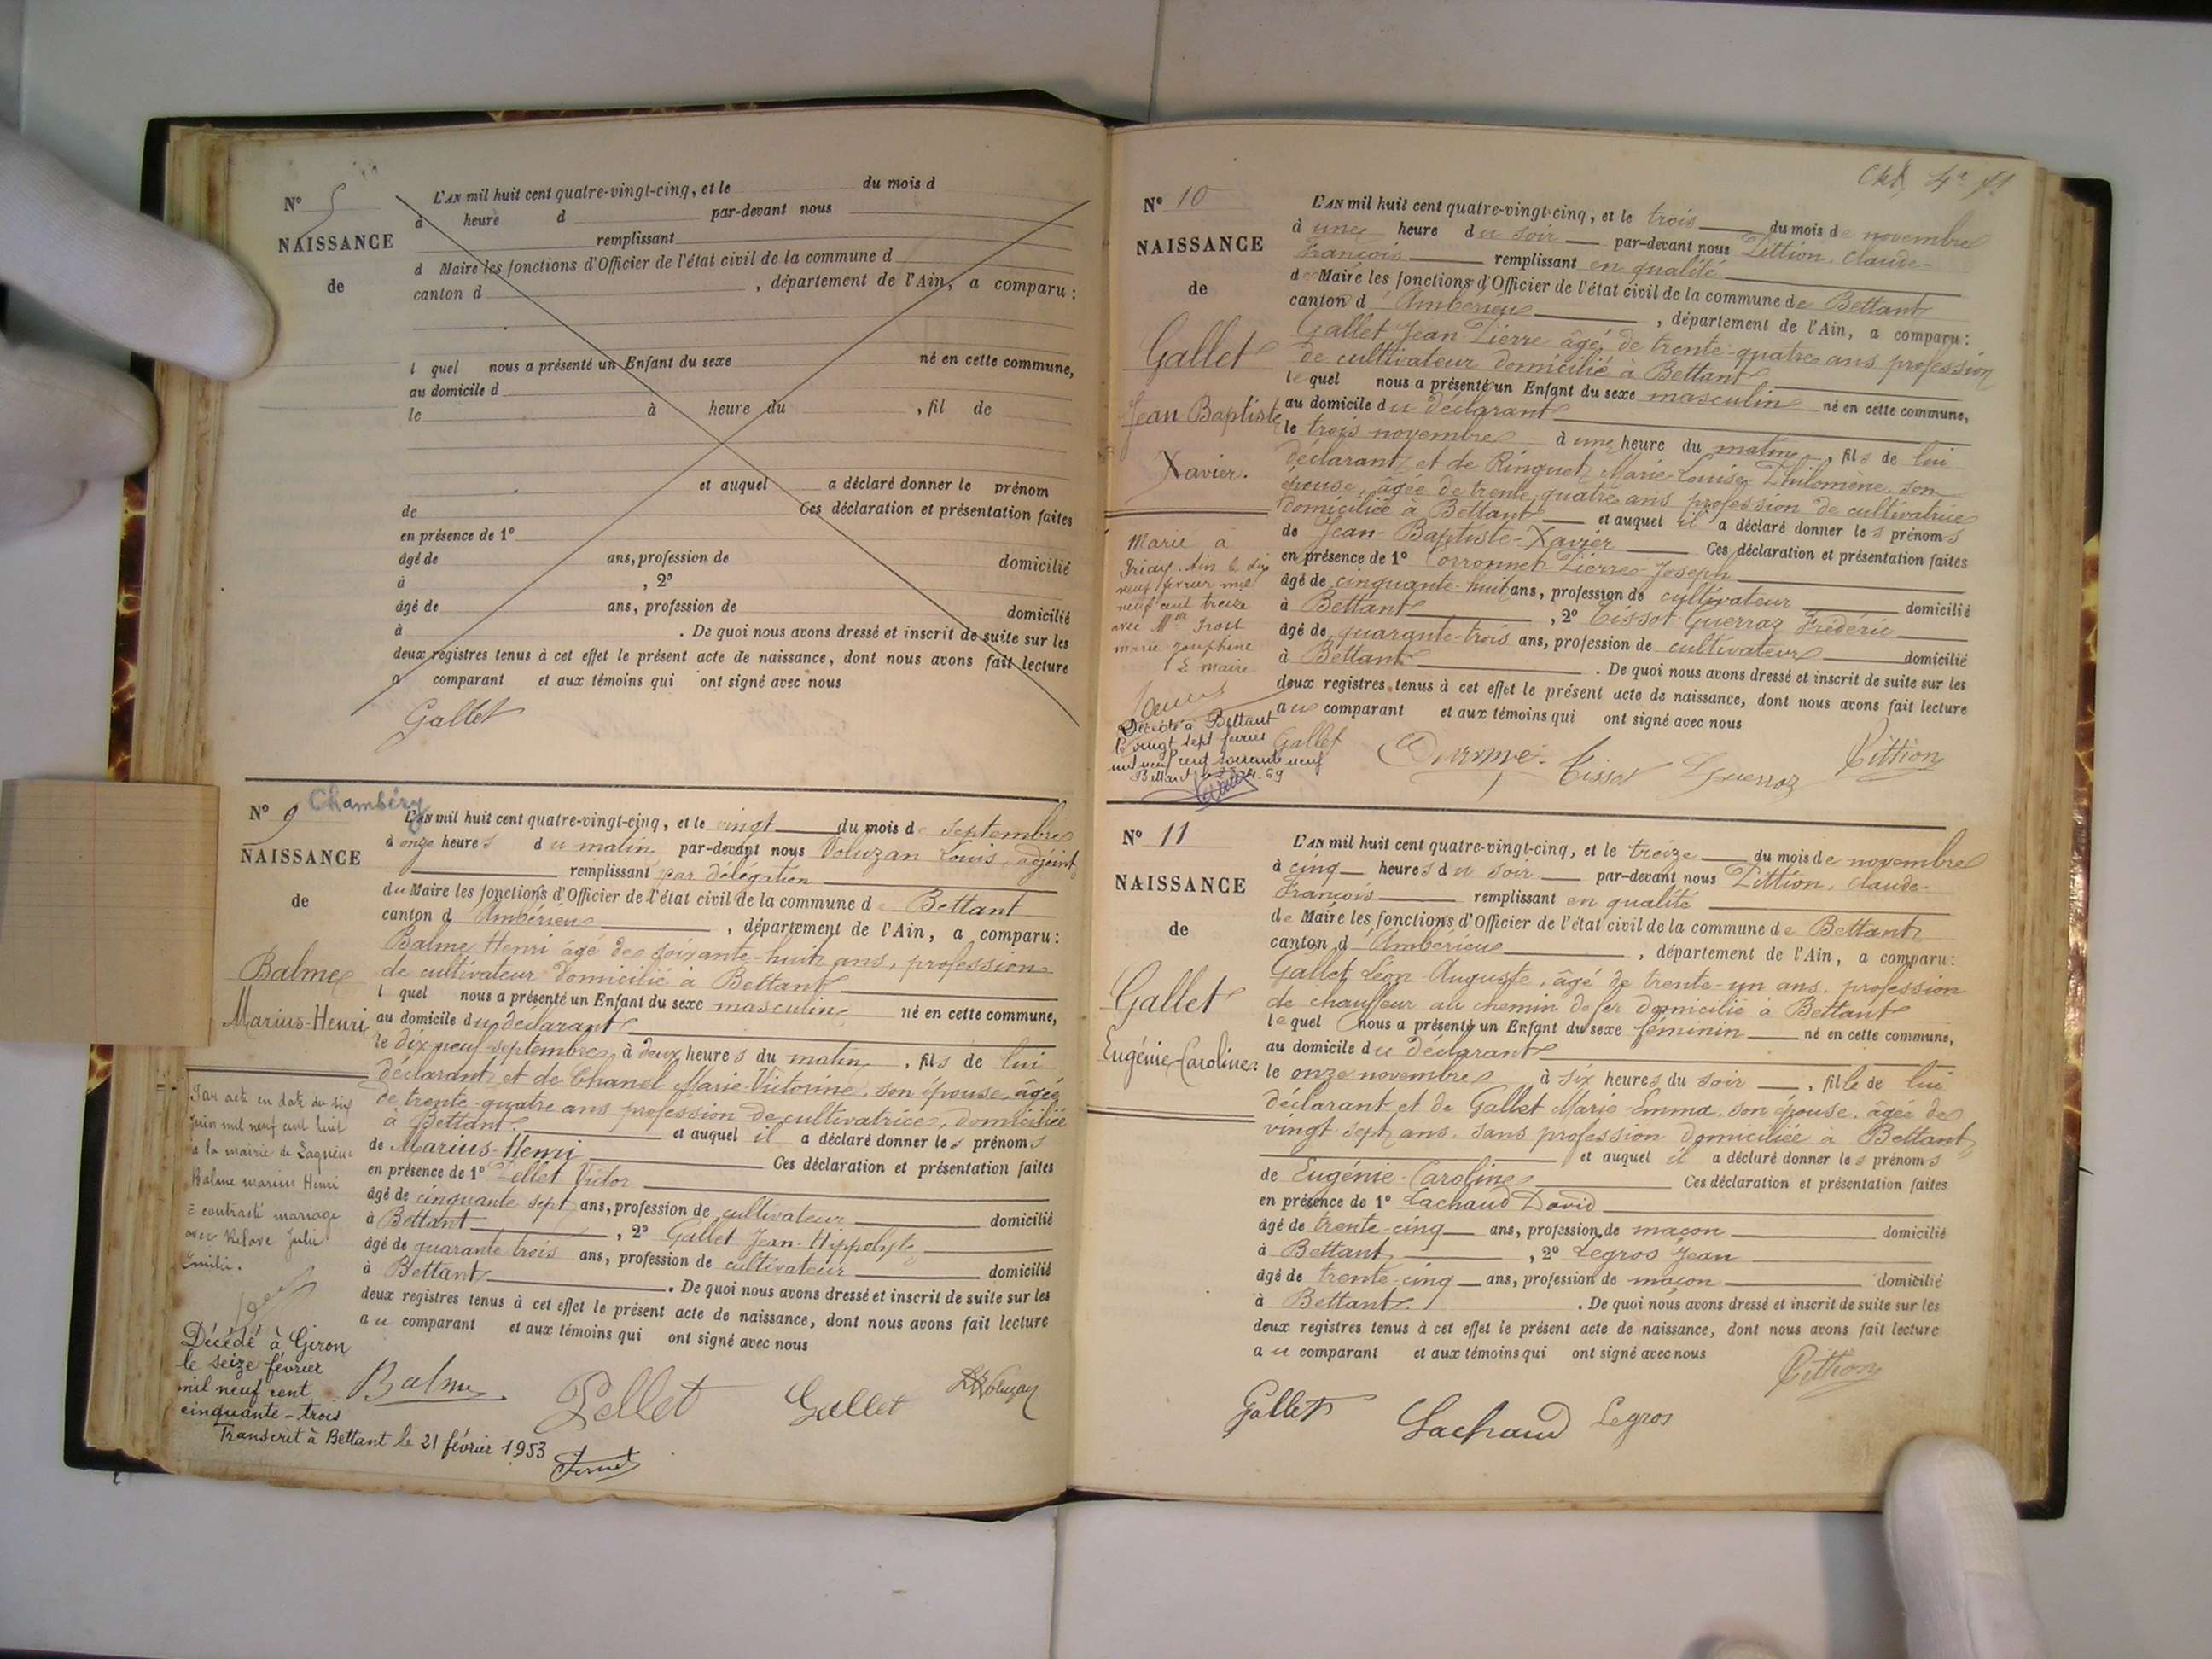 N°
NAISSANCE
de
L'AN mil huit cent quatre-vingt-cinq, et le du mois d
à heure d par-devant nous
remplissant
d Maire les fonctions d'Officier de l'état civil de la commune d
canton d , département de l'Ain, a comparu :
l quel nous a présenté un Enfant du sexe né en cette commune,
au domicile d
le à heure du , fil de
et auquel a déclaré donner le prénom
de Ces déclaration et présentation faites
en présence de 1°
âgé de ans, profession de domicilié
à , 2°
âgé de ans, profession de domicilié
à . De quoi nous avons dressé et inscrit de suite sur les
deux registres tenus à cet effet le présent acte de naissance, dont nous avons fait lecture
a comparant et aux témoins qui ont signé avec nous
Gallet
N° 9 Chambéry
NAISSANCE
de
Balme
Marius-Henri
L'AN mil huit cent quatre-vingt-cinq, et le vingt du mois de septembre
à onze heures du matin par-devant nous Voluzan Louis, adjoint
remplissant par délégation
du Maire les fonctions d'Officier de l'état civil de la commune de Bettant
canton d'Ambérieu , département de l'Ain, a comparu :
Balme Henri âgé de soixante-huit ans, profession
de cultivateur domicilié à Bettant
l quel nous a présenté un Enfant du sexe masculin né en cette commune,
au domicile du déclarant
le dix neuf septembre à deux heures du matin , fils de lui
déclarant et de Chanel Marie-Victorine, son épouse, âgée
de trente-quatre ans profession de cultivatrice, domiciliée
à Bettant. et auquel il a déclaré donner les prénoms
de Marius-Henri Ces déclaration et présentation faites
en présence de 1° Pellet Victor
âgé de cinquante sept ans, profession de cultivateur domicilié
à Bettant , 2° Gallet Jean-Hippolyte
âgé de quarante trois ans, profession de cultivateur domicilié
à Bettant . De quoi nous avons dressé et inscrit de suite sur les
deux registres tenus à cet effet le présent acte de naissance, dont nous avons fait lecture
au comparant et aux témoins qui ont signé avec nous
Par acte en date du six
juin mil neuf cent huit
à la mairie de Lagnieu
Balme marius Henri
a contracté mariage
avec Julie
Emilie.
Décédé à Giron
le seize février
mil neuf cent
cinquante-trois
Transcrit à Bettant le 21 février 1953
Balme Pellet Gallet Voluzan
N° 10
NAISSANCE
de
Gallet
Jean Baptiste
Xavier.
L'AN mil huit cent quatre-vingt-cinq, et le trois du mois de novembre
à une heure du soir par-devant nous Pittion, Claude-
François remplissant en qualité
de Maire les fonctions d'Officier de l'état civil de la commune de Bettant
canton d'Ambérieu , département de l'Ain, a comparu :
Gallet Jean-Pierre âgé de trente-quatre ans profession
de cultivateur domicilié à Bettant
lequel nous a présenté un Enfant du sexe masculin né en cette commune,
au domicile du déclarant
le trois novembre à une heure du matin , fils de lui
déclarant et de Ringuet Marie-Louise Philomène, son
épouse, âgée de trente quatre ans profession de cultivatrice
domiciliée à Bettant et auquel il a déclaré donner les prénoms
de Jean-Baptiste-Xavier Ces déclaration et présentation faites
en présence de 1° Pierre-Joseph
âgé de cinquante-huit ans, profession de cultivateur domicilié
à Bettant , 2° Tissot Guerraz Frédéric
âgé de quarante-trois ans, profession de cultivateur domicilié
à Bettant . De quoi nous avons dressé et inscrit de suite sur les
deux registres tenus à cet effet le présent acte de naissance, dont nous avons fait lecture
au comparant et aux témoins qui ont signé avec nous
Marié a
Priay. Ain le dix
neuf février mil
neuf cent treize
avec Mlle
marie Joséphine
Le maire
Décédé à Bettant
le vingt sept février
mil neuf cent soixante neuf
Bettant
Gallet Tissot Guerraz Pittion
N° 11
NAISSANCE
de
Gallet
Eugénie-Caroline
L'AN mil huit cent quatre-vingt-cinq, et le treize du mois de novembre
à cinq heures du soir par-devant nous Pittion, Claude-
François remplissant en qualité
de Maire les fonctions d'Officier de l'état civil de la commune de Bettant
canton d'Ambérieu , département de l'Ain, a comparu :
Gallet Léon-Auguste, âgé de trente-un ans, profession
de chauffeur au chemin de fer domicilié à Bettant
lequel nous a présenté un Enfant du sexe féminin né en cette commune,
au domicile du déclarant
le onze novembre à six heures du soir , fille de lui
déclarant et de Gallet Marie-Emma, son épouse, âgée de
vingt-sept ans, sans profession domiciliée à Bettant
et auquel il a déclaré donner les prénoms
de Eugénie-Caroline Ces déclaration et présentation faites
en présence de 1° Lachaud David
âgé de trente-cinq ans, profession de maçon domicilié
à Bettant , 2° Legros Jean
âgé de trente-cinq ans, profession de maçon domicilié
à Bettant . De quoi nous avons dressé et inscrit de suite sur les
deux registres tenus à cet effet le présent acte de naissance, dont nous avons fait lecture
au comparant et aux témoins qui ont signé avec nous
Pittion
Gallet Lachaud Legros